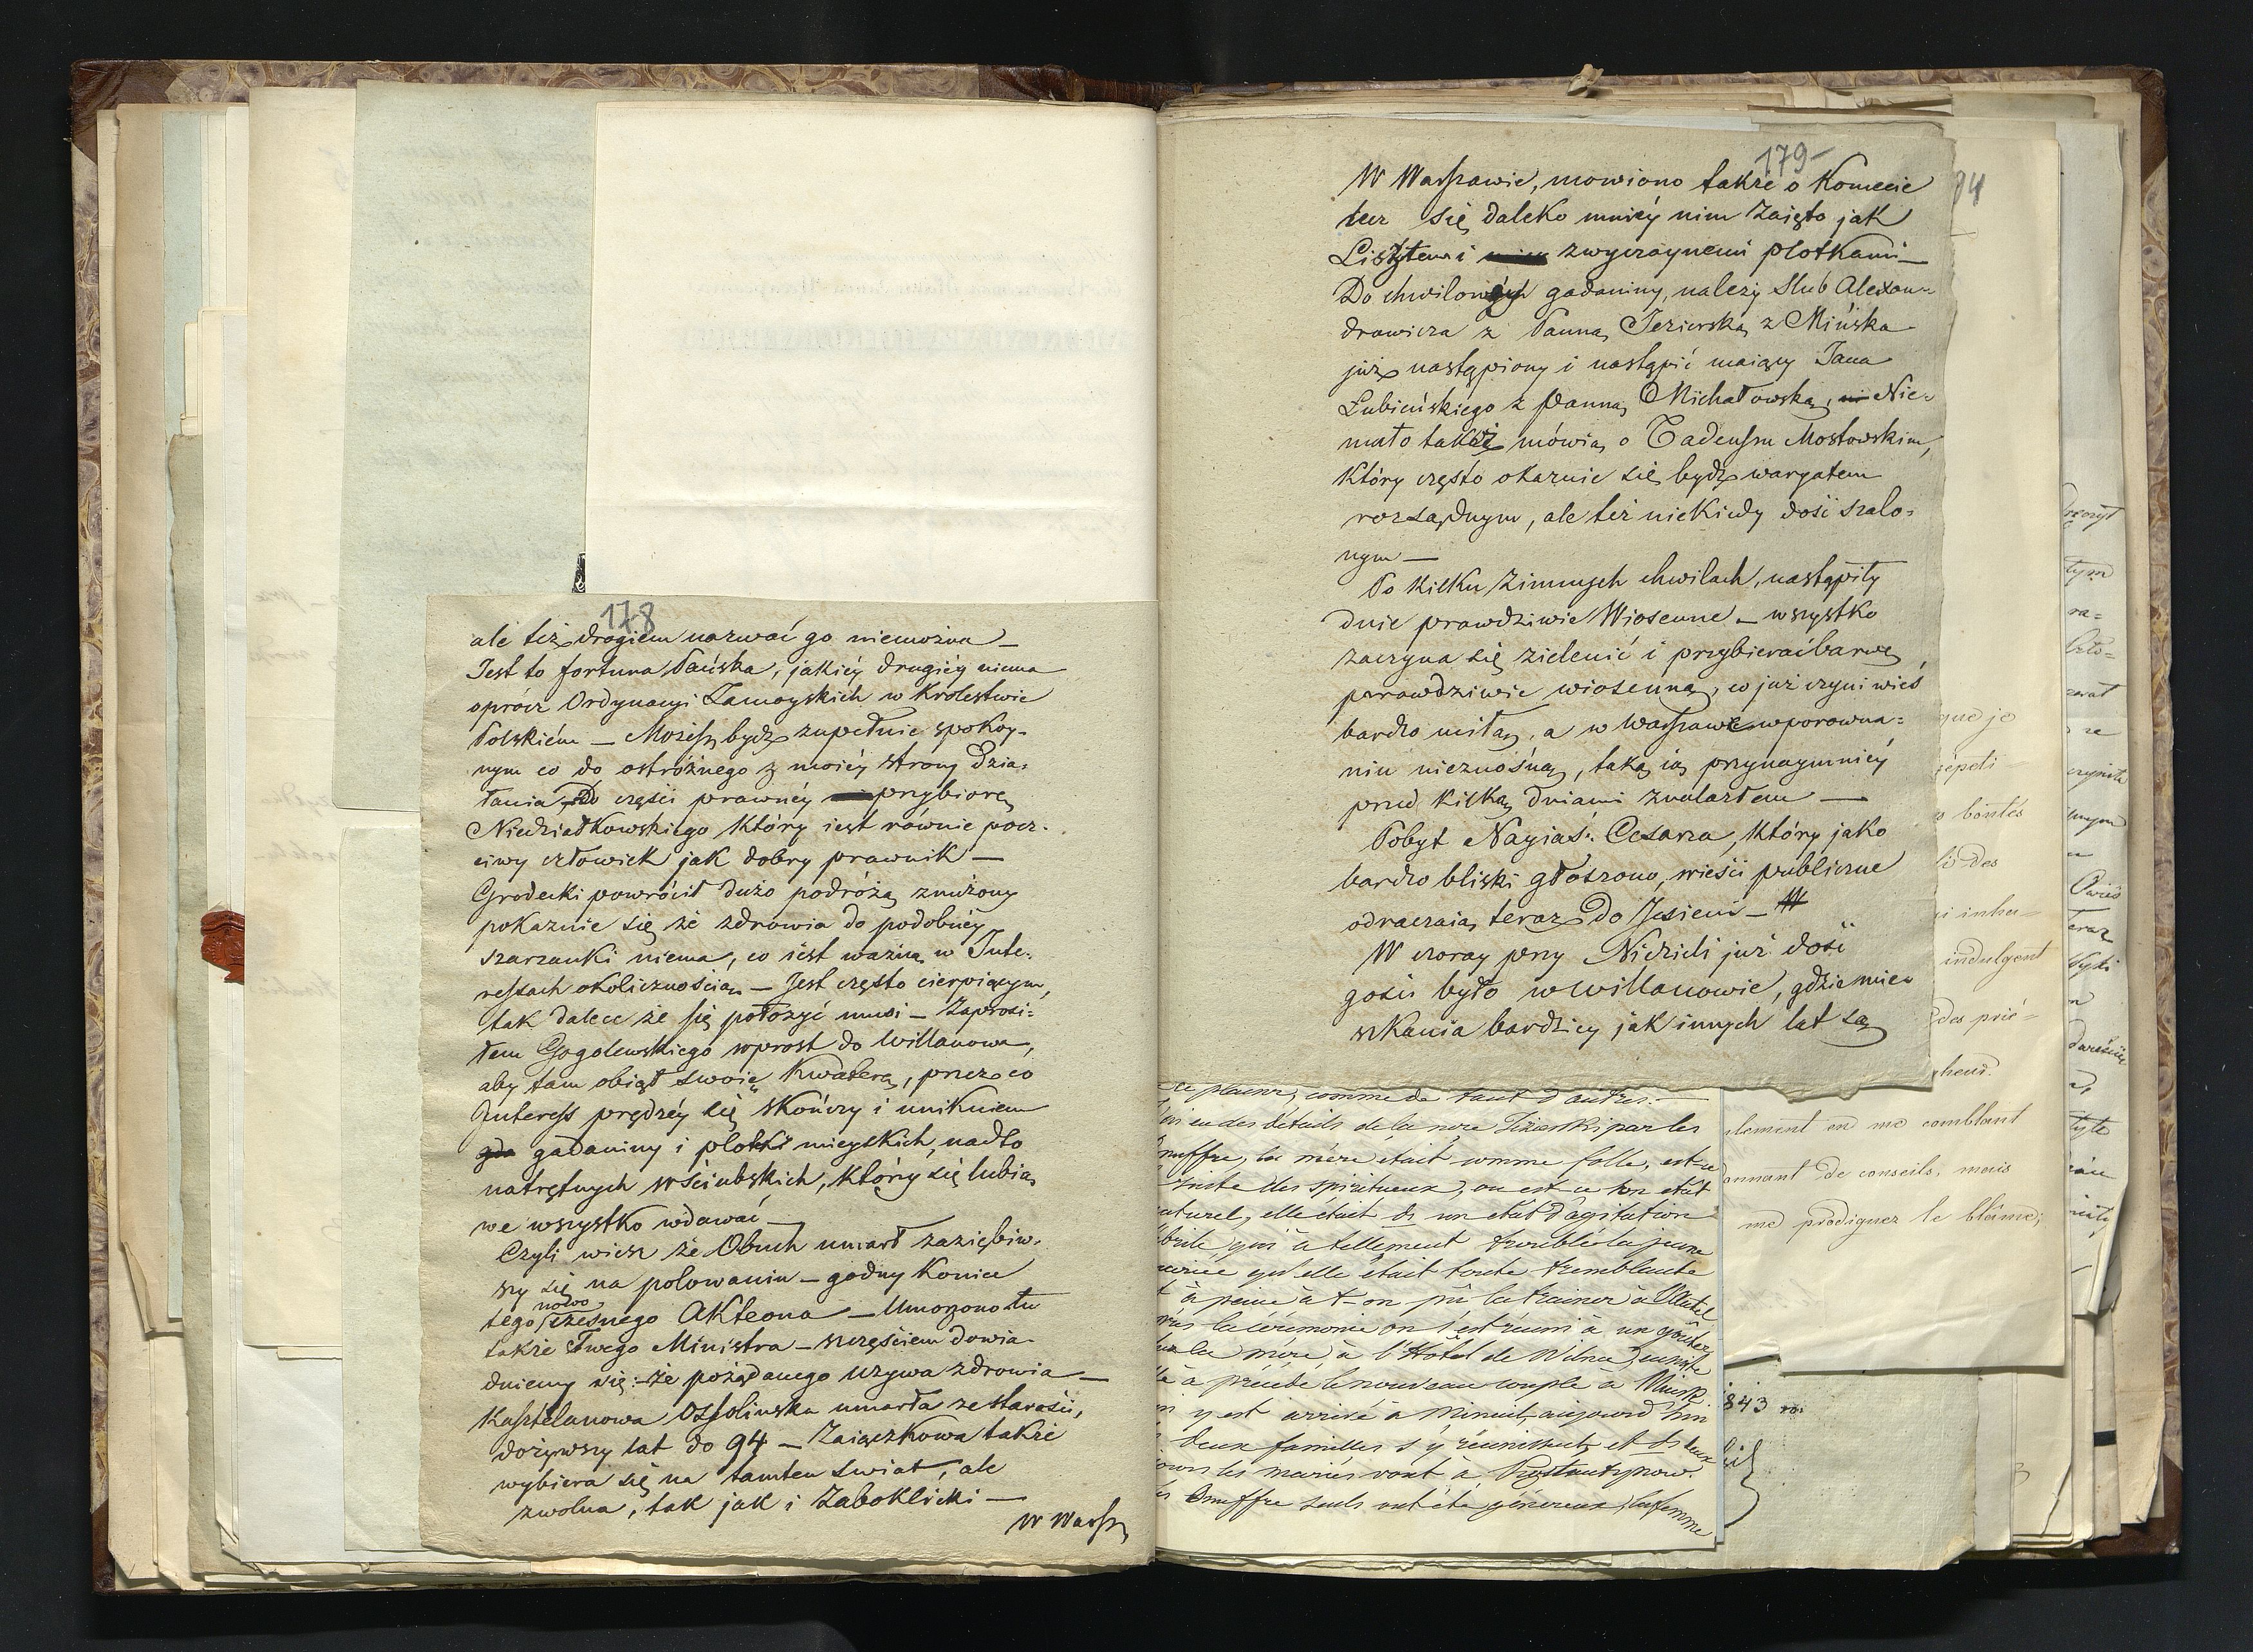 178
ale też drogiem nazwać go niemożna —
Jest to fortuna Pańska, jakiéy drugiéy niema
oprócz Ordynacyi Zamoyskich w Krolestwie
Polskiém — Możesz bydź zupełnie spokoy-
nym co do ostróżnego z moiéy strony dzia-
łania, Do części prawnéy przybiorę
Niedziałkowskiego który iest równie pocz-
ciwy człowiek jak dobry prawnik —
Grodecki powrócił dużo podróżą znużony
pokazuie się że zdrowia do podobnéy
szarzanki niema, co iest ważną w Inte-
ressach okolicznością — Jest często cierpiącym,
tak dalece że się położyć musi — Zaprosi-
łem Gogolewskiego wprost do Willanowa,
aby tam obiął swoię kwaterę, przez co
Interess prędzéy się skończy i unikniem
gadaniny i plotki mieyskich, nadto
natrętnych wściubskich, którzy się lubią
we wszystko wdawać —
Czyli wiesz że Obuch umarł zaziębiw-
szy się na polowaniu — godny koniec
tego nowo czesnego Akteona — Umorzono tu
także Twego Ministra — szczęściem dowia-
dujemy się: że pożądanego używa zdrowia —
Kasztelanowa Ossolinska umarła ze starości,
dożywszy lat do 94 — Zaiączkowa także
wybiera się na tamten swiat, ale
zwolna, tak jak i Zaboklicki —
W Warsz
179
W Warszawie, mowiono także o Komecie
lecz się daleko mniéy nim zaięto jak
Lisztem i zwyczaynemi plotkami —
Do chwilowych gadaniny, należy Slub Alexan-
drowicza z Panną Jezierską z Mińska
już nastąpiony i nastąpić maiący Jana
Łubieńskiego z Panną Michałowską, Nie-
mało także mówią o Tadeuszu Mostowskim,
który często okazuie się bydź waryatem
rozsądnym, ale też niekiedy dość szalo-
nym —
Po kilku zimnych chwilach, nastąpiły
dnie prawdziwie Wiosenne — wszystko
zaczyna się zielenić i przybierać barwę
prawdziwie wiosenną, co już czyni wieś
bardzo miłą, a w Warszawe w porowna-
niu nieznośną, taką ią przynaymniéy
przed kilką dniami znalazłem —
Pobyt Nayiaś: Cesarza, który jako
bardzo bliski głoszono, wieści publiczne
odraczaią teraz do Jesieni —
W czoray przy Niedzieli już dość
gości było w Willanowie, gdzie miesz-
zkania bardziey jak innych lat są
ce plaisir, comme de tant d'autres. —
en des détails de la noce Jézierski par les
muffre, la mère était comme folle, est-ce
suite des spiritueux, ou est-ce son état
naturel, elle était ds un état d'agitation
brile qui a tellement troublé la jeune
mariée qu'elle était toute tremblante
à peine a-t-on pu la trainer à l'Autel
après la cérémonie on s'est réuni à un goûter
la mère à l'Hôtel de Wilna, ensuite
a précédé le nouveau couple à Minsk
y est arrivé à Minuit, aujourd'hui
deux familles s'y réunissent et ds deux
jours les mariés vont à
seuls ont été généreux, la femme
94
que je
répeti
bontés
des
indulgent
des
element en me comblant
donnant de conseils, mais
me prodiguez le blâme;
843